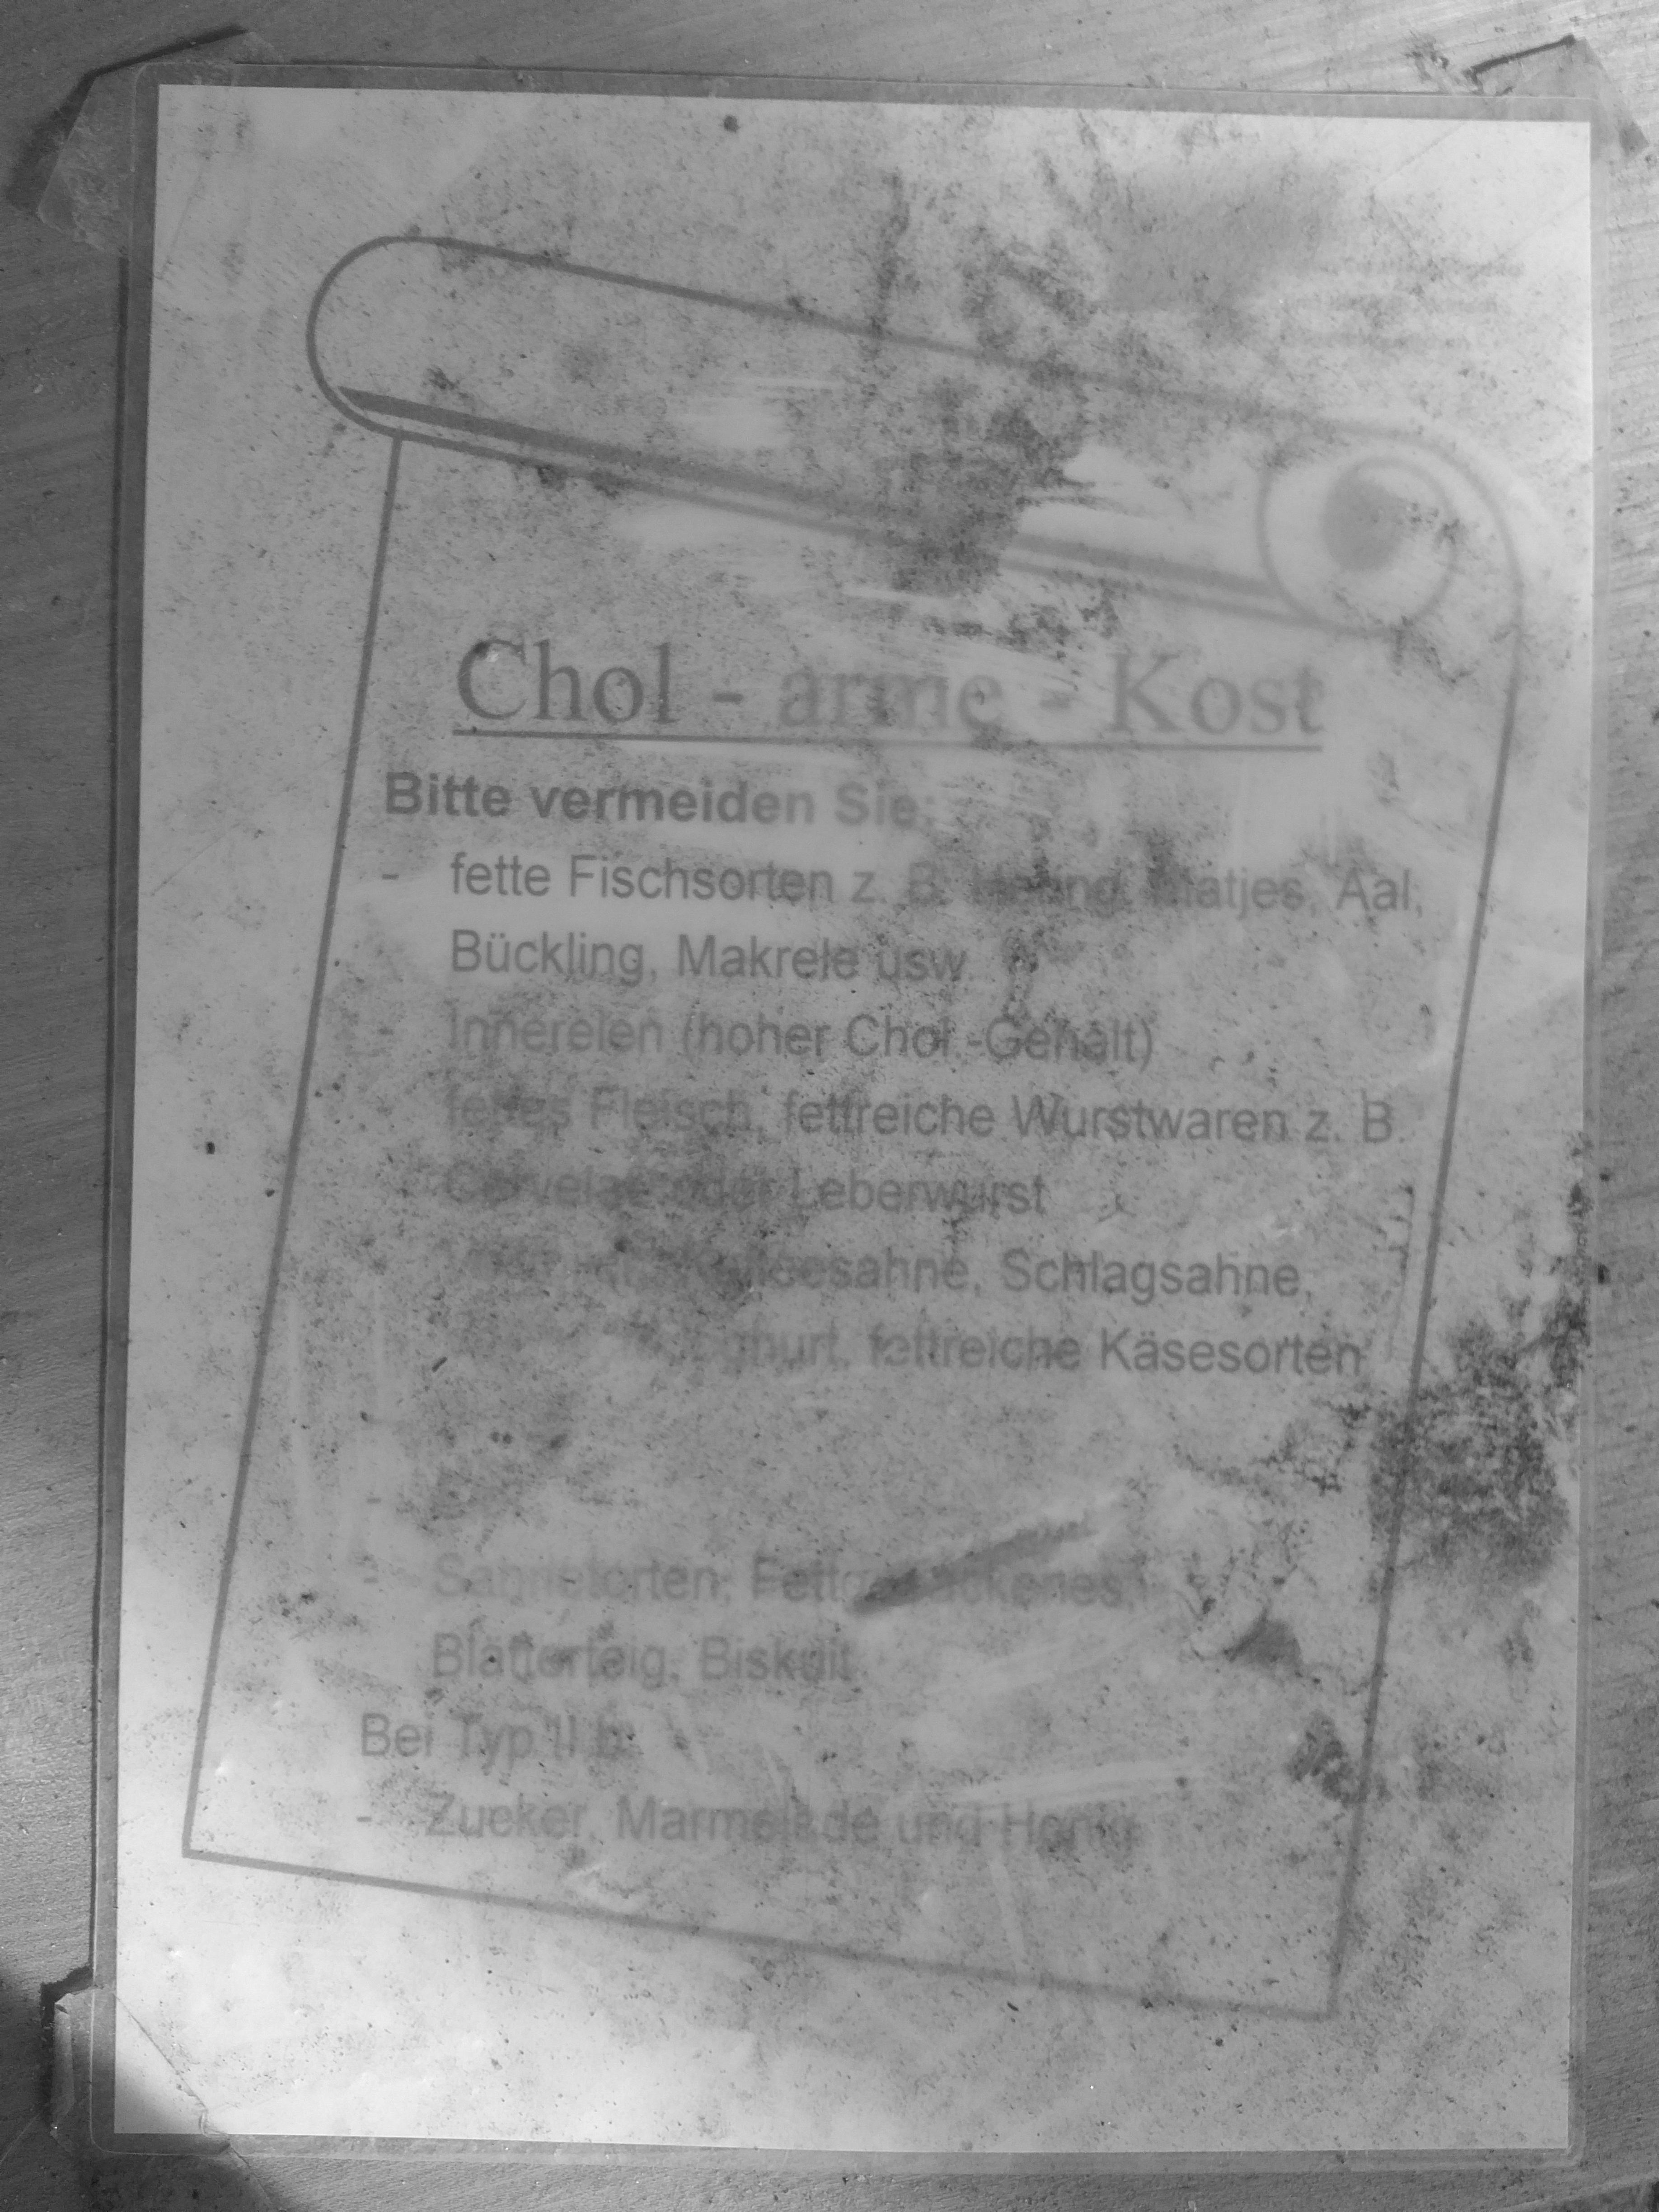 Chol - arme - Kost
Bitte vermeiden Sie:
- fette Fischsorten z. B. Matjes, Aal,
Bückling, Makrele usw.
- Innereien (hoher Chol.-Gehalt)
fettes Fleisch, fettreiche Wurstwaren z. B.
oder Leberwurst
Kaffeesahne, Schlagsahne,
fettreiche Käsesorten
-
- Sahnetorten, Fettgebackenes,
Blätterteig, Biskuit
Bei Typ II b:
- Zucker, Marmelade und Honig